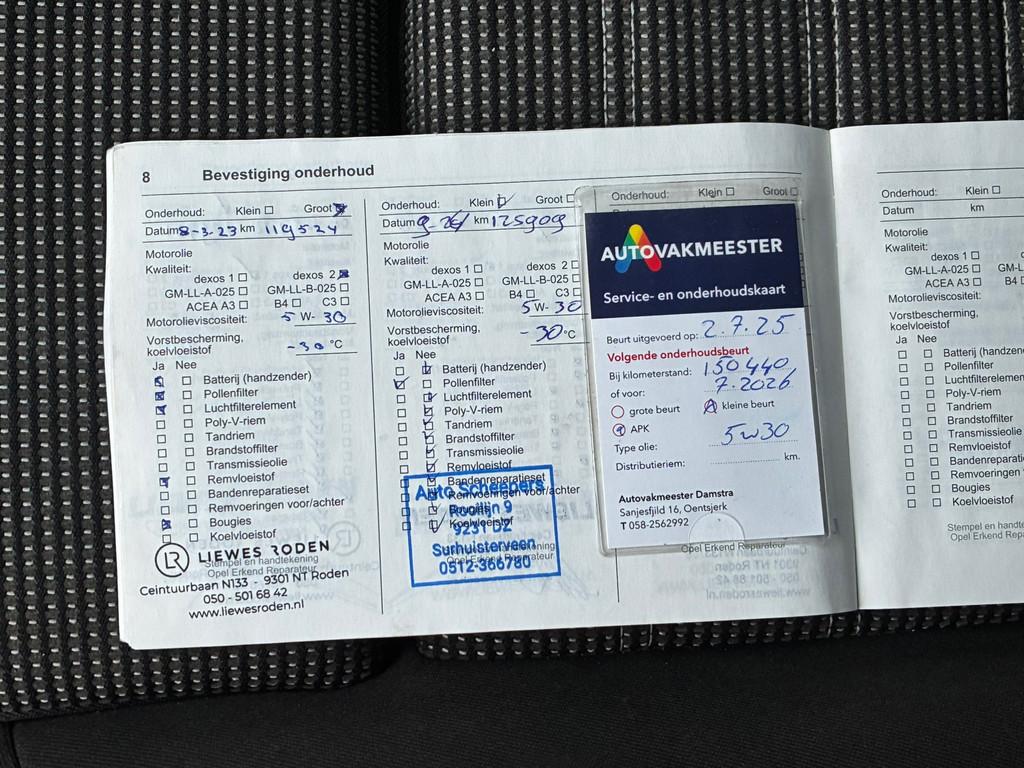 8 Bevestiging onderhoud
Onderhoud: Klein Groot
Datum 8-3-23 km 119524
Motorolie
Kwaliteit:
dexos 1 dexos 2
GM-LL-A-025 GM-LL-B-025
ACEA A3 B4 C3
Motorolieviscositeit: 5 W-30
Vorstbescherming,
koelvloeistof -30 °C
Ja Nee
Batterij (handzender)
Pollenfilter
Luchtfilterelement
Poly-V-riem
Tandriem
Brandstoffilter
Transmissieolie
Remvloeistof
Bandenreparatieset
Remvoeringen voor/achter
Bougies
Koelvloeistof
LR LIEWES RODEN
Stempel en handtekening
Opel Erkend Reparateur
Ceintuurbaan N133 - 9301 NT Roden
050 - 501 68 42
www.liewesroden.nl
Onderhoud: Klein Groot
Datum km 125909
Motorolie
Kwaliteit:
dexos 1 dexos 2
GM-LL-A-025 GM-LL-B-025
ACEA A3 B4 C3
Motorolieviscositeit: 5W-30
Vorstbescherming,
koelvloeistof -30 °C
Ja Nee
Batterij (handzender)
Pollenfilter
Luchtfilterelement
Poly-V-riem
Tandriem
Brandstoffilter
Transmissieolie
Remvloeistof
Bandenreparatieset
Remvoeringen voor/achter
Bougies
Koelvloeistof
Auto Scheepers
Rooilijn 9
9231 DZ
Surhuisterveen
0512-366780
Opel Erkend Reparateur
Onderhoud: Klein Groot
AUTOVAKMEESTER
Service- en onderhoudskaart
Beurt uitgevoerd op: 2.7.25
Volgende onderhoudsbeurt
Bij kilometerstand: 150440
of voor: 7.2026
grote beurt kleine beurt
APK
Type olie: 5W30
Distributieriem: km.
Autovakmeester Damstra
Sanjesfjild 16, Oentsjerk
T 058-2562992
Opel Erkend Reparateur
Onderhoud: Klein
Datum km
Motorolie
Kwaliteit:
dexos 1
GM-LL-A-025 GM-L
ACEA A3 B4
Motorolieviscositeit:
Vorstbescherming,
koelvloeistof
Ja Nee
Batterij (handzen
Pollenfilter
Luchtfilterelemen
Poly-V-riem
Tandriem
Brandstoffilter
Transmissieolie
Remvloeistof
Bandenreparati
Remvoeringen
Bougies
Koelvloeistof
Stempel en handte
Opel Erkend Repa